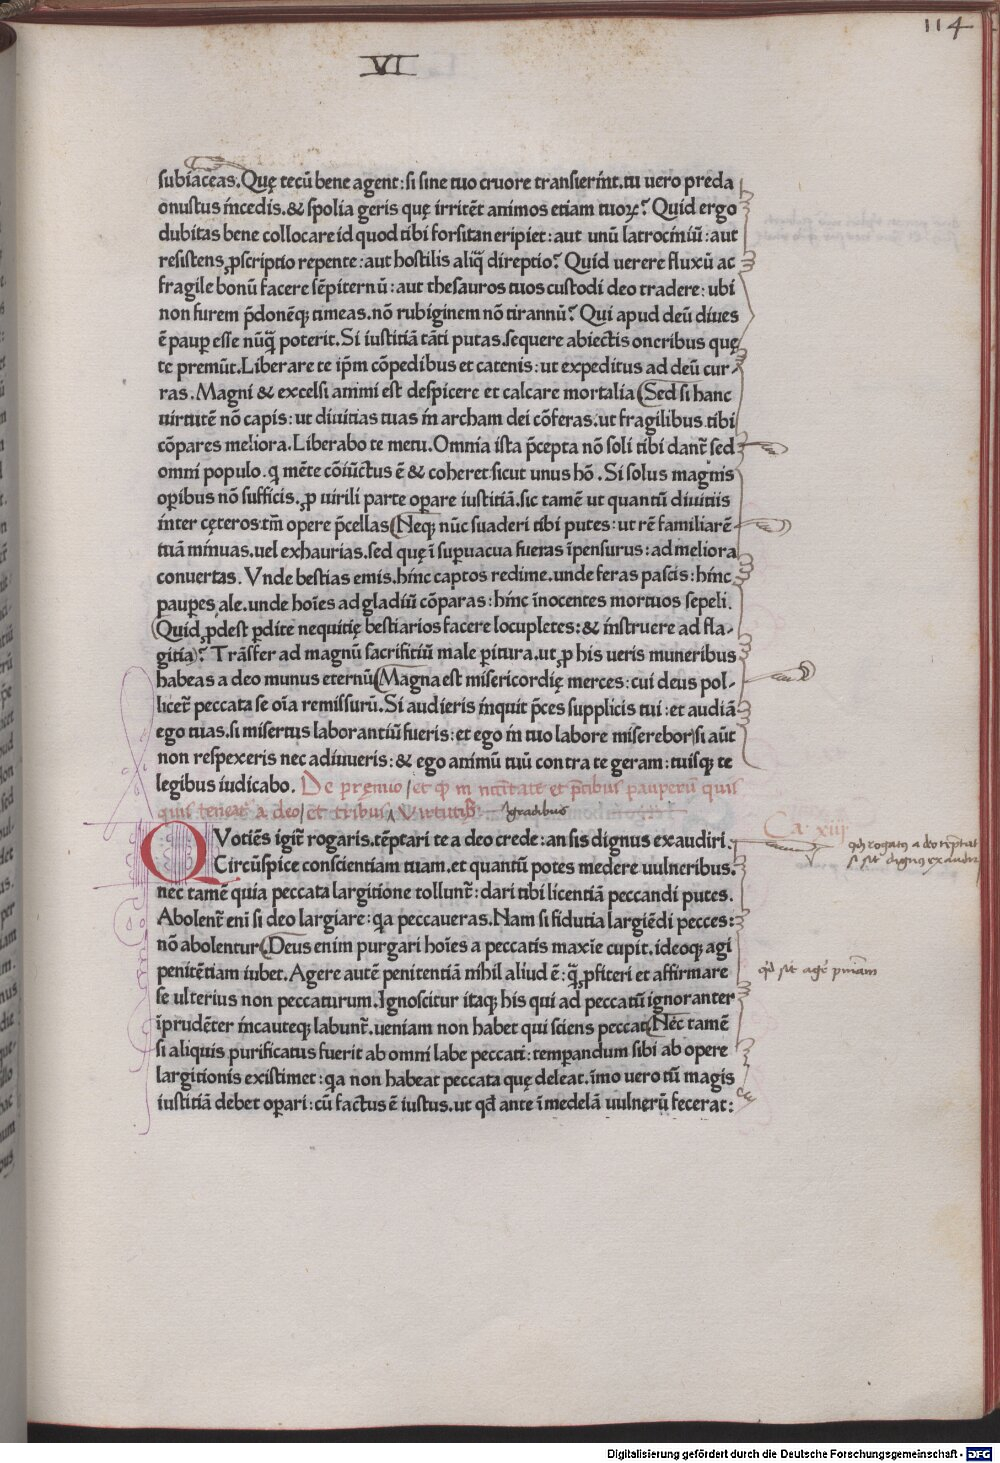 114
VI
subiaceas. Quę tecū bene agent: si sine tuo cruore transierint. tu uero preda
onustus incedis. & spolia geris quę irritēt animos etiam tuoꝝ? Quid ergo
dubitas bene collocare id quod tibi forsitan eripiet: aut unū latrociniū: aut
resistens ꝓscriptio repente: aut hostilis aliq̄ direptio? Quid uerere fluxū ac
fragile bonū facere sēpiternū: aut thesauros tuos custodi deo tradere: ubi
non furem p̄donēqꝫ timeas. nō rubiginem nō tirannū? Qui apud deū diues
ē pauꝑ esse nūq̄ poterit. Si iustitiā tāti putas. sequere abiectis oneribus quę
te premūt. Liberare te ip̄m cōpedibus et catenis: ut expeditus ad deū cur-
ras. Magni & excelsi animi est despicere et calcare mortalia (Sed si hanc
uirtutē nō capis: ut diuitias tuas in archam dei cōferas. ut fragilibus tibi
cōpares meliora. Liberabo te metu. Omnia ista p̄cepta nō soli tibi dant̄ sed
omni populo. q mēte cōiūctus ē & coheret sicut unus hō. Si solus magnis
opibus nō sufficis. ꝓ uirili parte oꝑare iustitiā. sic tamē ut quantū diuitiis
inter cęteros. tm̄ opere p̄cellas (Neqꝫ nūc suaderi tibi putes: ut rē familiarē
tuā minuas. uel exhaurias. sed quę ī suꝑuacua fueras īpensurus: ad meliora
conuertas. Vnde bestias emis. hinc captos redime. unde feras pascis: hinc
pauꝑes ale. unde hoīes ad gladiū cōparas: hinc īnocentes mortuos sepeli.
(Quid ꝓdest ꝑdite nequitię bestiarios facere locupletes: & instruere ad fla-
gitia)? Trāsfer ad magnū sacrifitiū male ꝑitura. ut ꝓ his ueris muneribus
habeas a deo munus eternū (Magna est misericordię merces: cui deus pol-
licet̄ peccata se oīa remissurū. Si audieris inquit p̄ces supplicis tui: et audiā
ego tuas. si misertus laborantiū fueris: et ego in tuo labore miserebor) si aūt
non respexeris nec adiuueris: & ego animū tuū contra te geram: tuisqꝫ te
legibus iudicabo. De pręmio / et
quis teneat̄ a deo / et tribus virtutis gradibus
Ca. xiii
QVotiēs igit̄ rogaris. tēptari te a deo crede: an sis dignus exaudiri.
Circūspice conscientiam tuam. et quantū potes medere uulneribus.
nec tamē quia peccata largitione tollunt̄: dari tibi licentiā peccandi putes.
Abolent̄ eni si deo largiare: qa peccaueras. Nam si fidutia largiēdi pecces:
nō abolentur (Deus enim purgari hoīes a peccatis maxīe cupit. ideoqꝫ agi
penitētiam iubet. Agere autē penitentiā nihil aliud ē: q̄ ꝓfiteri et affirmare
se ulterius non peccaturum. Ignoscitur itaqꝫ his qui ad peccatū ignoranter
īprudēter incauteqꝫ labunt̄. ueniam non habet qui sciens peccat (Nec tamē
si aliquis purificatus fuerit ab omni labe peccati: temꝑandum sibi ab opere
largitionis existimet: qa non habeat peccata quę deleat. īmo uero tū magis
iustitiā debet oꝑari: cū factus ē iustus. ut qd̄ ante ī medelā uulnerū fecerat:
si sit dignus exaudiri
qd sit agē
Digitalisierung gefördert durch die Deutsche Forschungsgemeinschaft - DFG